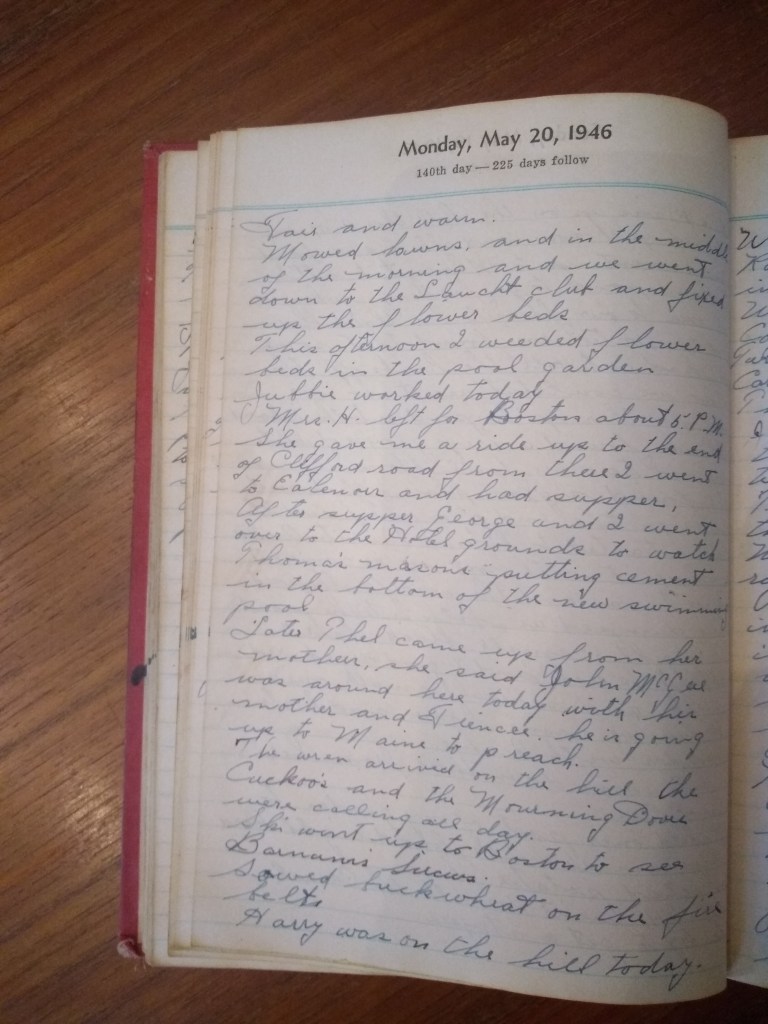 Monday, May 20, 1946
140th day — 225 days follow
Fair and warm.
Mowed lawns. and in the middle
of the morning and we went
down to the Laucht club and fixed
up the flower beds
This afternoon I weeded flower
beds in the pool garden
Jubbie worked today
Mrs. H. left for Boston about 5. P.M.
She gave me a ride up to the end
of Clifford road from there I went
to and had supper,
After supper George and I went
over to the Hotel grounds to watch
Thomas masons putting cement
in the bottom of the new swimming
pool
Later Phel came up from her
mother, she said John McGee
was around here today with his
mother and he is going
up to Maine to preach.
The wren arrived on the hill the
Cuckoo's and the Mourning Dove
were calling all day.
Ski went up to Boston to see
Barnum's Sircus.
Sowed buckwheat on the fire
belts
Harry was on the hill today.